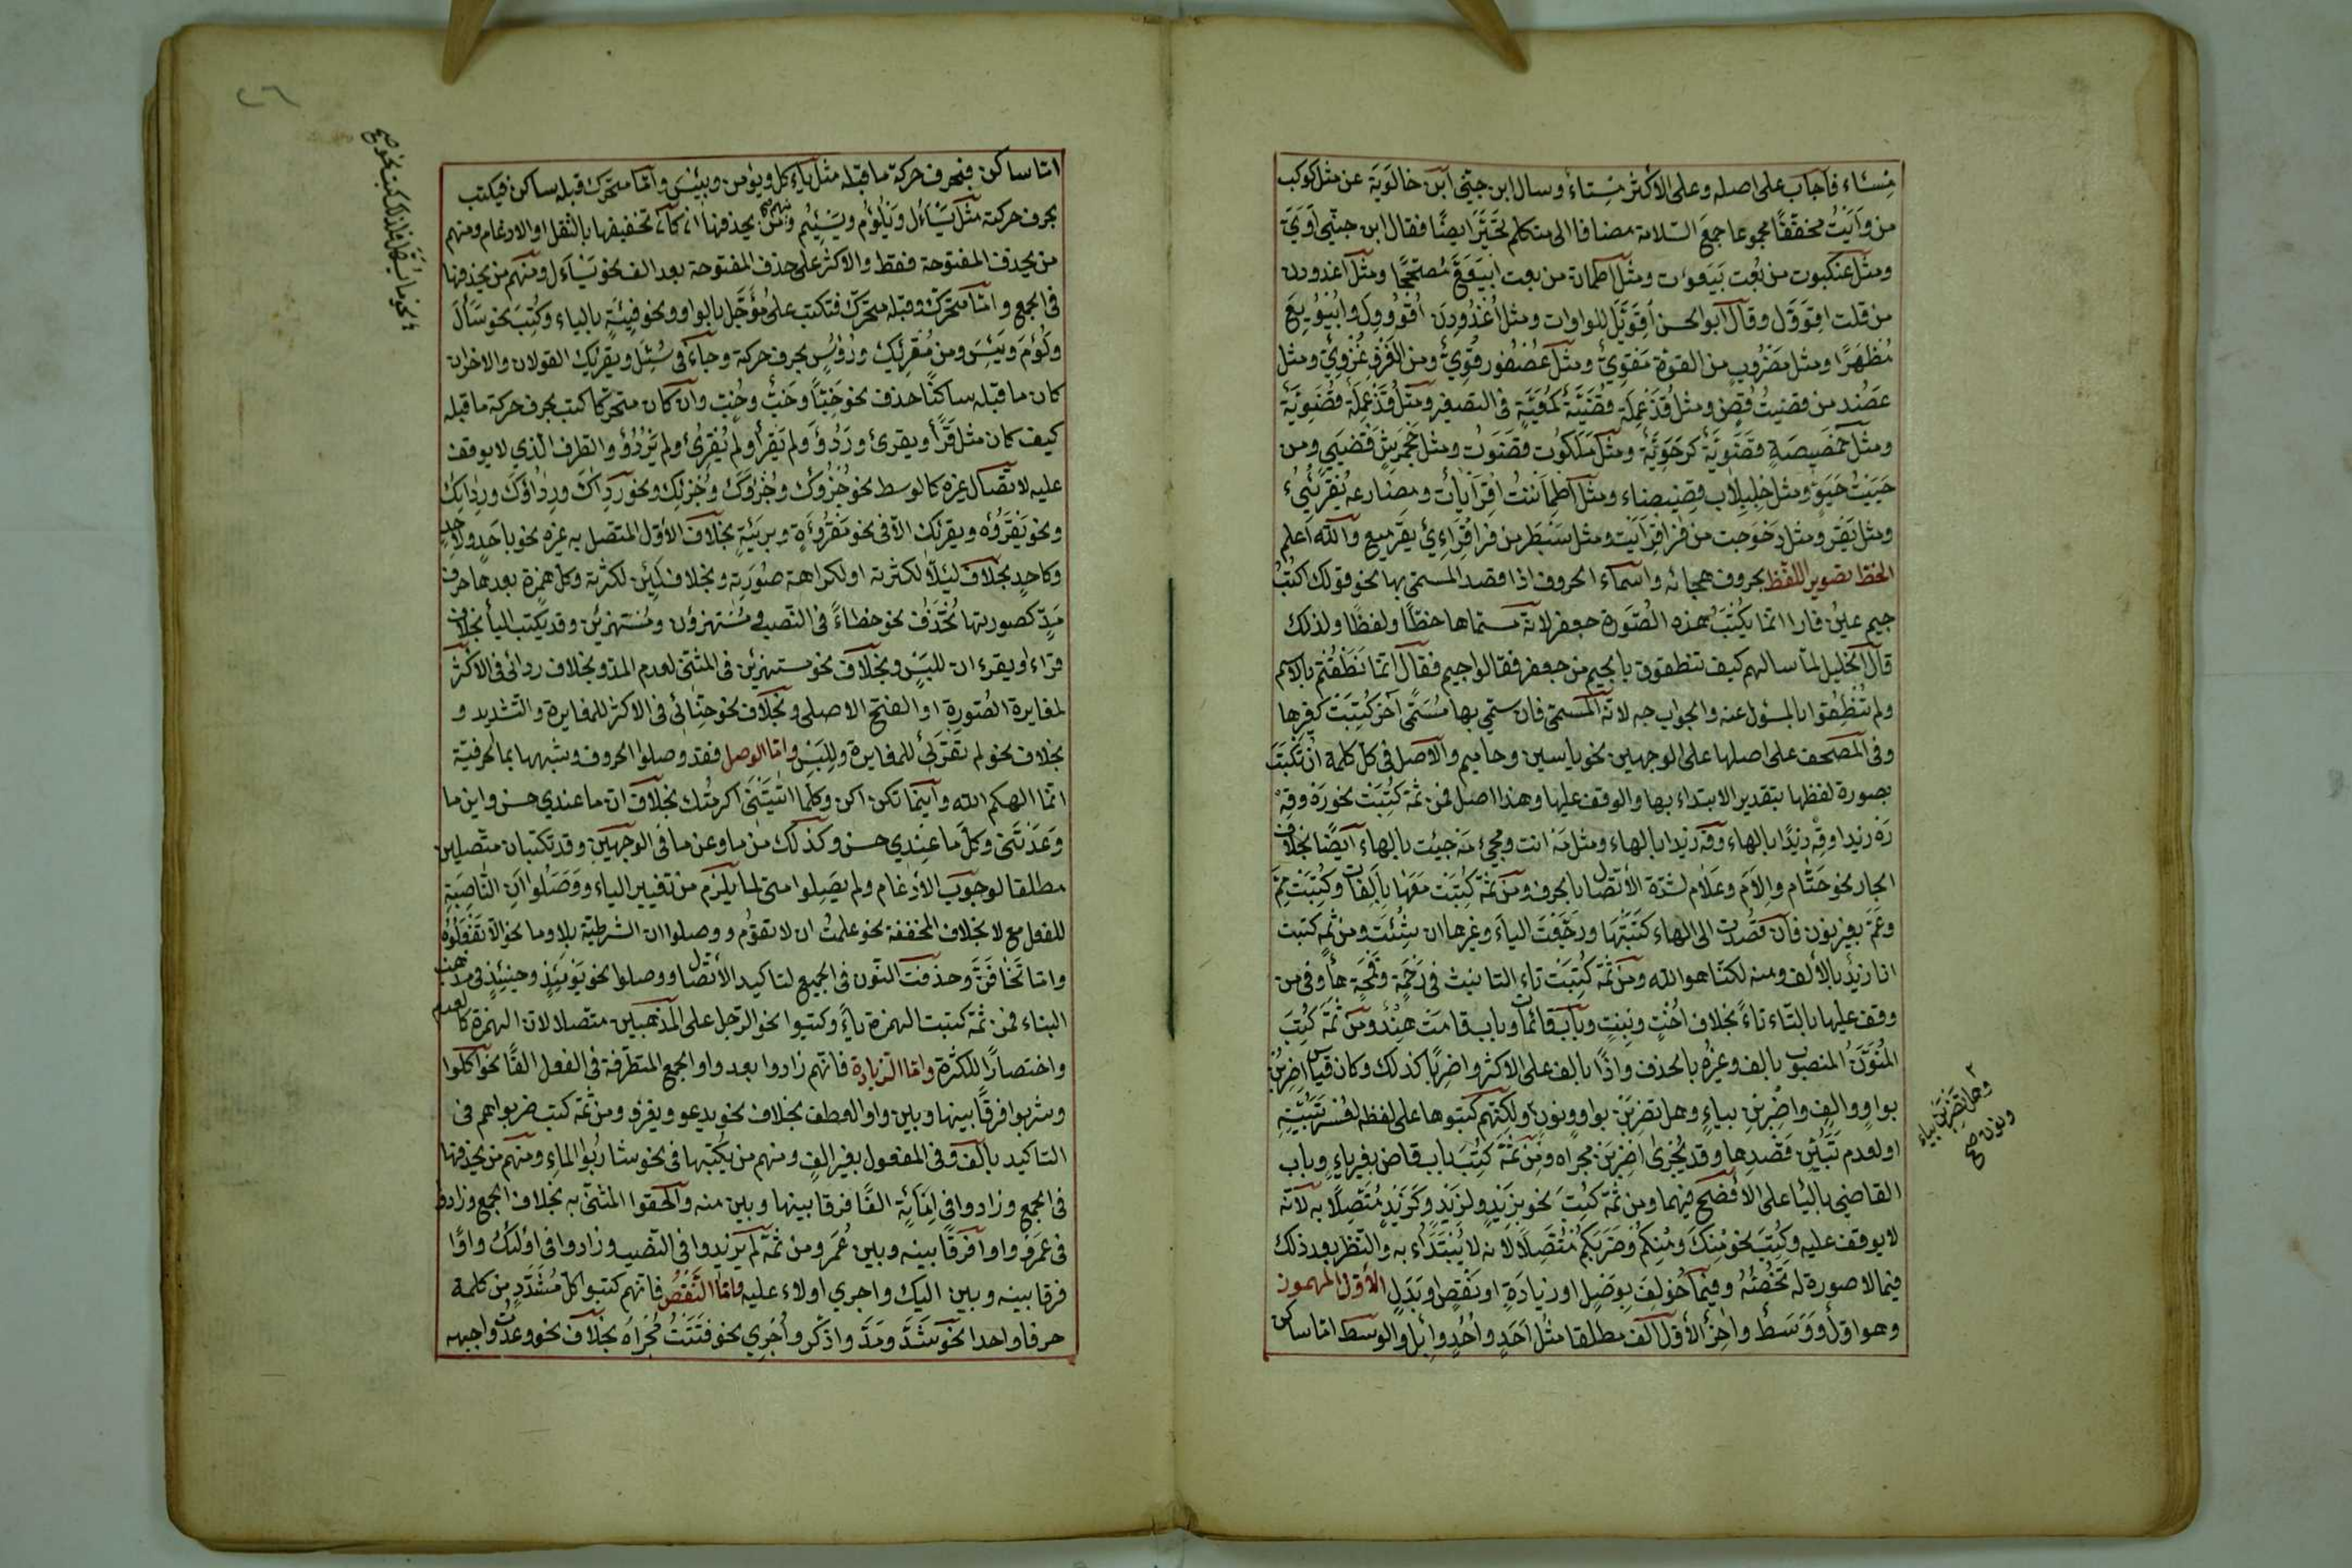 مِسْئَاء فاجاب على اصله وعلى الاكثر مُسْتاءٌ وسال ابن جنّي ابن خالَوَيَة عن مثل كوكب
من وَاَيْتُ مخفّفًا مجموعا جمعَ السّلامة مضافا الى متكلم تَحَيَّرَ ايضًا فقال ابن جنّي اَوَيَّ
ومثل عنكبوت من بُعت بَيَعوُت ومثل اطمأن من بعت اَبْيَعَعَّ مُصحّحًا ومثل اغدودن
من قلت اقوَوّل وقال ابو الحسن اِقْوَيَّلَ للواوات ومثل اُغْدُودِنَ اُقْوُووِلَ واُبْيُويِعَ
مُظهَرًا ومثل مَضْرُوبٍ من القوّة مَقْوِيٌّ ومثل عُصْفُور قُوِيٌّ ومن الغَزْوِ غُزْوِيٌّ ومثل
عَضُد من قضيتُ قُضٍ ومثل قُذَعْمِلَة قُضَيَّةٌ كمُعَيَّةٍ فى التصغير ومثل قُذَعْمِيلَةٍ قُضَوِيَّةٌ
ومثل حَمَصِيصَةٍ قَضَوِيَّةٌ كرَحَوِيَّة ومثل مَلَكُوت قَضَوُتٌ ومثل جَحْمَرِشٍ قَضْيَيٍ ومن
حَيِيتُ حَيَوٍّ ومثل حِلِبْلابٍ قِضِيضاء ومثل اطمأننتُ اقرأيأتُ ومضارعه يَقْرَئِيءُ
الخط تصوير اللفظ بحروف هجائه واسماء الحروف اذا قصد المسمّى بها نحو قولك اكتُبْ
جيم عين فا را انما يُكْتَبُ بهذه الصّورة جعفر لانّه مسماها خطّا ولفظًا ولذلك
قال الخليل لمّا سالهم كيف تنطقون بالجيم من جعفر فقالوا جيم فقال انّما نَطَقْتُم بالاسم
ولم تَنْطِقُوا بالمسئول عنه والجواب جه لانّه المسمّى فان سمّي بها مُسَمًّى آخر كُتِبَتْ كغيرها
وفى المصحف على اصلها على الوجهين نحو ياسين وحاميم والاصل فى كلّ كلمة ان تُكْتَبَ
بصورة لفظها بتقدير الابتداء بها والوقف عليها وهذا اصل فمن ثمّة كُتِبَتْ نحو رَهْ وقِهْ
رَهْ زيدا وقِهْ زيدًا بالهاء ومثل مَهْ انت ومجيءَ مَهْ جئت بالهاء ايضًا بخلاف
الجار نحو حَتّام واِلامَ وعَلام لشدّة الاتّصال بالحرف ومن ثمّة كُتِبَت مَعَها بِاَلِفات وكُتِبَت مِمَّ
وعَمَّ بغير نون فان قصدت الى الهاء كَتَبْتَها ورجعت الياءَ وغيرها ان شئت ومن ثمّ كتبت
انا زيدٌ بالألف ومنه لكنّا هو الله ومن ثمّة كُتِبَت تاء التانيث فى رَحْمَة وقَمْحَة هاءً وفى من
وقف عليها بالتّاء تاءً بخلاف اُخْتٍ وبِنتٍ وباب قائمات وباب قامَتْ هِنْدٌ ومن ثمّة كُتِبَ
المُنَوَّنُ المنصوب بالف وغيرُه بالحذف واذًا بالف على الاكثر واضربًا كذلك وكان قياس اضْرِبُنْ
بواوٍ والفٍ واضْرِبِنْ بياءٍ وهل تضربُنْ بواوٍ ونونٍ ولكنّهم كتبوها على لفظه لعُسْر تَبَيُّنِهِ
او لعدم تَبَيُّنِ قَصْدِها وقد يُجْرَى اضْرِبَنْ مجراه ومن ثَمّة كُتِبَ باب قاض بغير ياءٍ وباب
القاضي بالياء على الأفصَح فيهما ومن ثمّة كُتِبَ نحو بزَيْدٍ ولزَيْدٍ وكَزَيْدٍ مُتّصِلًا به لانّه
لا يوقف عليه وكُتِبَ نحو مِنْكَ ومِنكُمْ وضَرَبَكُمْ مُتّصِلًا لانه لا يُبْتَدَاُ به والنّظر بعد ذلك
فيما لا صورة له تَخُصُّهُ وفيما خُولِفَ بِوَصْلٍ او زيادَةٍ او نَقْصٍ او بَدَلٍ الأوّل المهموز
وهو اوّلٌ ووَسَطٌ واخِرٌ الأوّل الف مطلقا مثل اَحَدٍ واُحُدٍ واِبِل والوسط امّا ساكن
٢ وهل تضربن بياء
ونون صح
٢٦
امّا ساكن فبحرف حركة ما قبله مثل يأكل ويؤمن وبِئْسَ وامّا متحرّك قبله ساكن فيكتب
بحرف حركته مثل يَسْاَلُ ويَلْؤُم ويُسْئِمُ ومنهم من يحذفها ان كان تخفيفها بالنّقل او الادغام ومنهم
من يحذف المفتوحة فقط والاكثر على حذف المفتوحة بعد الف نحو يَسْاءَل ومنهم من يحذفها
فى الجمع وامّا متحرّك وقبله متحرّك فتكتب على مُؤَجَّل بالواو ونحو فِئَةٍ بالياء وكُتِبَ نحو سَأَلَ
ولَؤُمَ ويَئِسَ ومن مُقْرِئِك ورُؤُسٍ بحرف حركته وجاء فى سُئِلَ ويُقْرِئُك القولان والاخر ان
كان ما قبله ساكنًا حذف نحو خَبْئًا وخَبْءٌ وخَبْءٍ وان كان متحرّكا كتب بحرف حركة ما قبله
كيف كان مثل قَرَأَ ويقرئ ورَدُؤَ ولم يَقْرَأْ ولم يُقْرِئْ ولم يَرْدُؤْ والطرف الّذي لا يوقف
عليه لاتّصال غيره كالوسط نحو جُزْؤُك وجُزْؤَك وجُزْئِك ونحو رِدَاؤُك ورِدَائِك
ونحو يَقْرَؤُه ويقرئك الا فى نحو مَقْرُوءَةٍ وبريَئةٍ بخلاف الأوّل المتّصل به غيره نحو باَحَدٍ ولاِحَدٍ
وكاحدٍ بخلاف لِئَلّا لكثرته او لكراهة صُورَتِه وبخلاف لَئِن لكثرته وكل همزة بعدها حرف
مَدٍّ كصورتها تُحْذَفُ نحو خطاءً فى النّصب ومُسْتهزؤن ومُسْتهزئن وقد يكتب الياء بخلاف
قرَاءا ويقرءان للّبس وبخلاف نحو مستهزئين فى المثنّى لعدم المدّ وبخلاف ردائى فى الاكثر
لمغايرة الصُّورة او الفتح الاصلى وبخلاف نحو حِنّائى فى الاكثر للمغايرة والتّشديد و
بخلاف نحو لم تَقْرَئى للمغايرة وللّبْس وامّا الوصل فقد وصلوا الحروف وشبهها بما الحرفيّة
انّما الهكم الله واَيْنَما تكن اكن وكلّما اتَيْتَنى اكرمتُك بخلاف انّ ما عندي حسن واين ما
وَعَدْتَنى وكلّ ما عندي حسن وكذلك من ما وعن ما فى الوجهين وقد تكتبان متّصلين
مطلقا لوجوب الأدغام ولم يَصِلوا متى لما يلزم من تغيير الياء ووَصَلُوا اَنِ النّاصبة
للفعل مع لا بخلاف المخففة نحو علمتُ ان لا تقوُم ووصلوا ان الشرطيّة بلا وما نحو الّا تَفْعَلُوهُ
وامّا تَخَافَنَّ وحذفت النّون فى الجميع لتاكيد الأتّصال ووصلوا نحو يَوْمَئِذٍ وحينَئِذٍ فى مذهب
البناء فمن ثمّة كتبت الهمزة ياءً وكتبوا نحو الرّجل على المذهبين متصلا لانّ الهمزة كالعدم
واختصارًا للكثرة وامّا الزيادة فانّهم زادوا بعد واو الجمع المتطرّفة فى الفعل الفًا نحو اكلوا
وشربوا فرقًا بينها وبين واو العطف بخلاف نحو يدعو ويغزو ومن ثمّة كتب ضربوا هم فى
التاكيد بالف وفى المفعول بغير الفٍ ومنهم من يكتبها فى نحو شاربُوا الماءِ ومنهم من يحذفها
فى الجمع وزادوا فى مِائَةٍ الفًا فرقا بينها وبين منه والحقوا المثنّى به بخلاف الجمع وزادوا
فى عمرو واوًا فرقًا بينه وبين عُمَر ومن ثمّة لم يزيدوا فى النّصب وزادوا فى اولئك واوًا
فرقا بينه وبين اليك واجري اولاء عليه وامّا النّقْصُ فانّهم كتبوا كلّ مُشَدّدٍ من كلمة
حرفا واحدا نحو شَدَّ ومَدَّ وادّكر واُجْرِي نحو قتَتُّ مُجْراهُ بخلاف نحو وعدتُ واجبهه